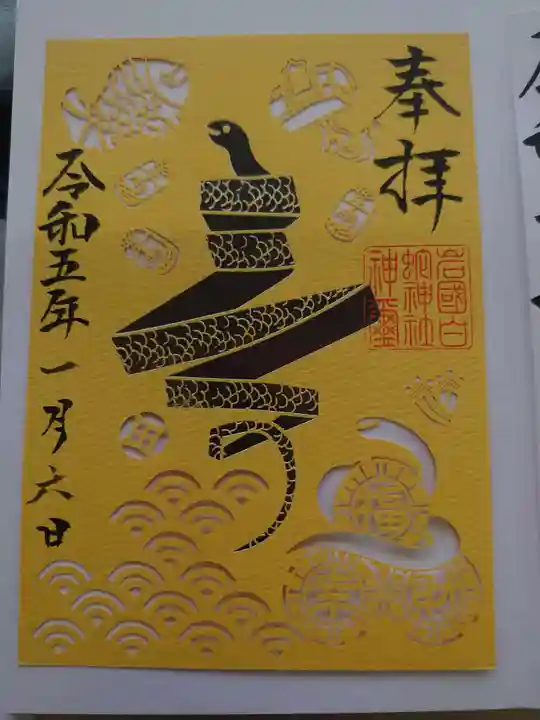 奉拝
岩國白
蛇神社
神璽
寿
令和五年一月六日
福